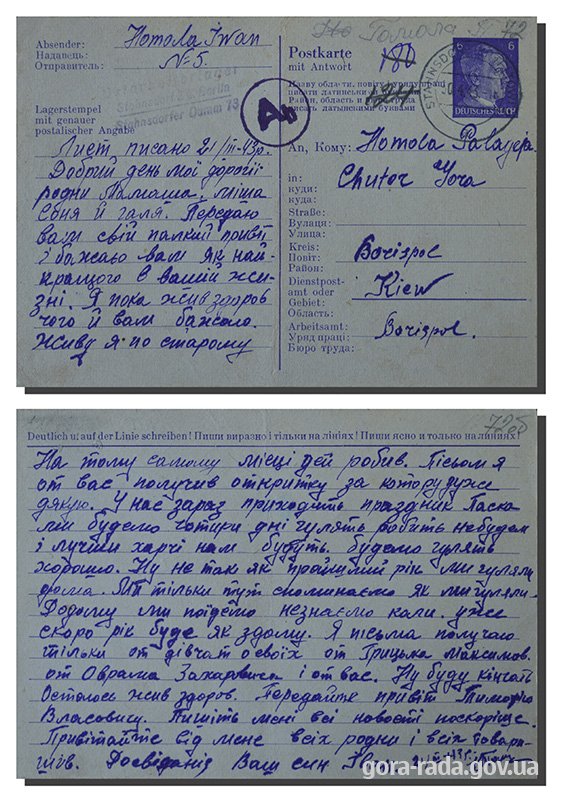 Absender: Homola Iwan
Надавець: № 5.
Отправитель:
Lagerstempel
mit genauer
postalischer Angabe
Stahnsdorfer Damm 13
Лист писано 21/III-43р.
Добрий день мої дорогії
родни Мамаша, міша
Соня й галя. Передаю
вам свій палкий привіт
і бажаю вам як най-
кращого в вашій жи-
зні. Я пока жив здоров
чого й вам бажаю.
Живу я по старому
72
Postkarte
mit Antwort
6 6
DEUTSCHES REICH
An, Кому: Homola Palageja
in: Chutor Gora
куди:
куда:
Straße:
Вулиця:
Улица:
Kreis: Borispol
Повіт:
Район:
Dienstpost-
amt oder Kiew
Gebiet:
Область:
Arbeitsamt: Borispol.
Уряд праці:
Бюро труда:
72об
Deutlich u. auf der Linie schreiben! Пиши виразно і тільки на лініях! Пиши ясно и только на линиях!
На тому самому місці дей робив. Пісьом я
от вас получив откритку за котру дуже
дякую. У нас зараз приходить праздник Паска
ми будемо чотири дні гулять робить не будем
і лучший харчі нам будуть. будемо гулять
хорошо. Ну не так як прошлий рік ми гуляли
дома. Ми тільки тут споминаємо як ми гуляли.
Додому ми поїдемо незнаємо коли. уже
скоро рік буде як здому. Я пісьма получаю
тільки от дівчат освоїх от Грицька Максимов.
от Оврама Захаровича і от вас. Ну буду кінчать
Остаюсь жив здоров. Передайте привіт Тимофію
Власовичу. Пишіть мені всі новості поскоріще.
Привітайте від мене всіх родни і всіх товари-
шів. Досвіданія Ваш син Іван
gora-rada.gov.ua